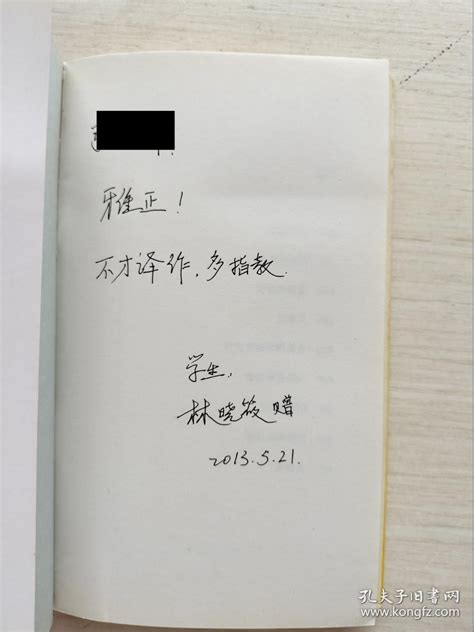 雅正！
不才译作，多指教.
学生：
林晓筱 赠
2013.5.21.
孔夫子旧书网
www.kongfz.com